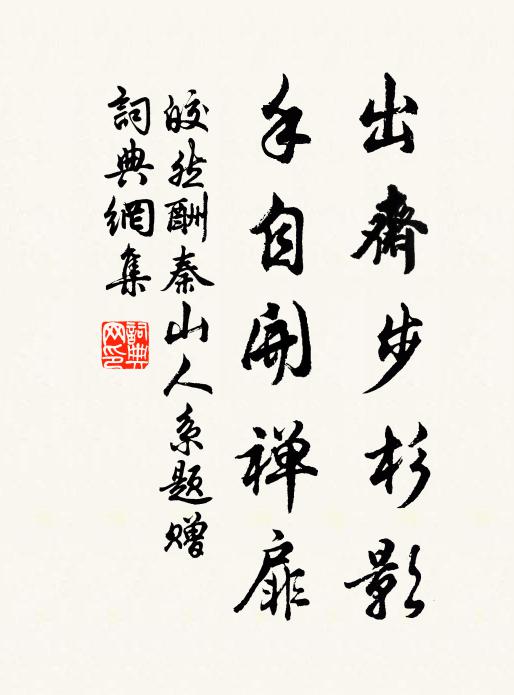 出齋步杉影
手自開禅扉
皎然酬秦山人系題贈
詞典網集
詞典网印